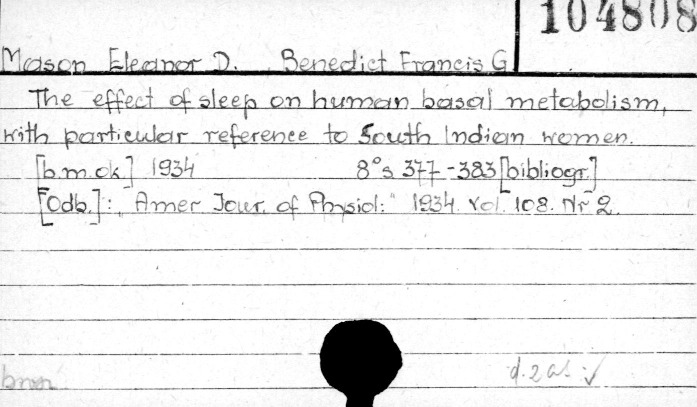 104808
Mason Eleanor D., Benedict Francis G
The effect of sleep on human basal metabolism,
with particular reference to South Indian women.
[b.m.ok] 1934 8°s 377-383 [bibliogr.]
[Odb.]: „Amer Jour. of Physiol:" 1934. Vol. 108. Nr 2.